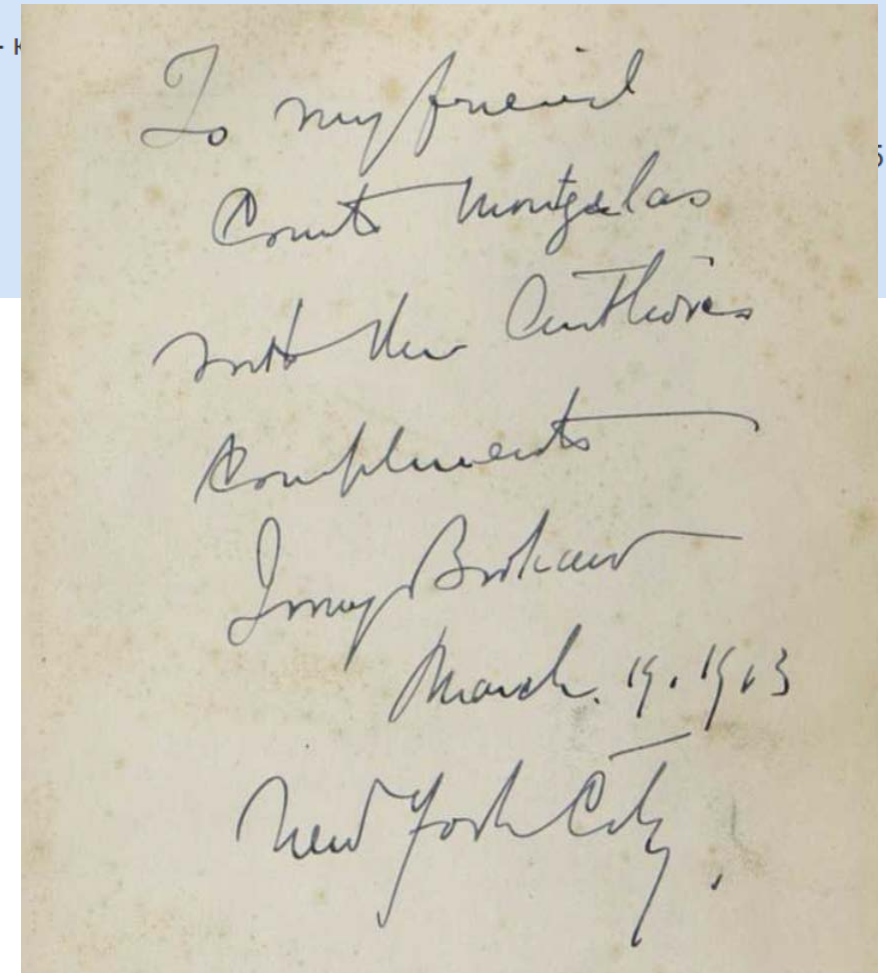 To my friend
Count Montgelas
with the Author's
Compliments
Irving Brokaw
March. 19. 1913
New York City.